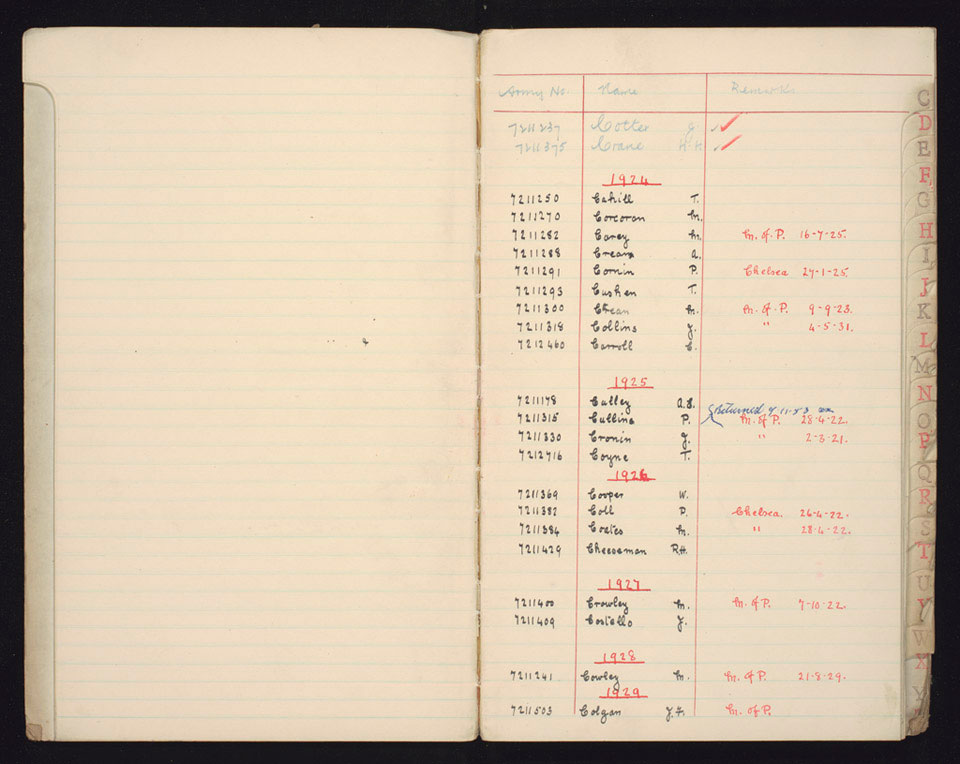 Army No. Name Remarks
7211237 Cotter J. ✓
7211375 Crane H.H. ✓
1924
7211250 Cahill T.
7211270 Corcoran M.
7211282 Carey M. M. of P. 16-7-25.
7211288 A.
7211291 P. Chelsea 27-1-25.
7211293 Cushen T.
7211300 M. M. of P. 9-9-23.
7211318 Collins J. " 4-5-31.
7212460 Carroll C.
1925
7211178 A.E.
Returned
7211315 Cullina P. M. of P. 28-4-22.
7211330 Cronin J. " 2-3-21.
7212716 Coyne T.
1926
7211369 Cooper W.
7211382 Coll P. Chelsea. 26-4-22.
7211384 Coates M. " 28-4-22.
7211429 Cheeseman R.H.
1927
7211400 Crowley M. M. of P. 7-10-22.
7211409 Costello J.
1928
7211241 Cowley M. M. of P. 21-8-29.
1929
7211503 Colgan M. of P.
C
D
E
F
G
H
I
J
K
L
M
N
O
P
Q
R
S
T
U
V
W
X
Y